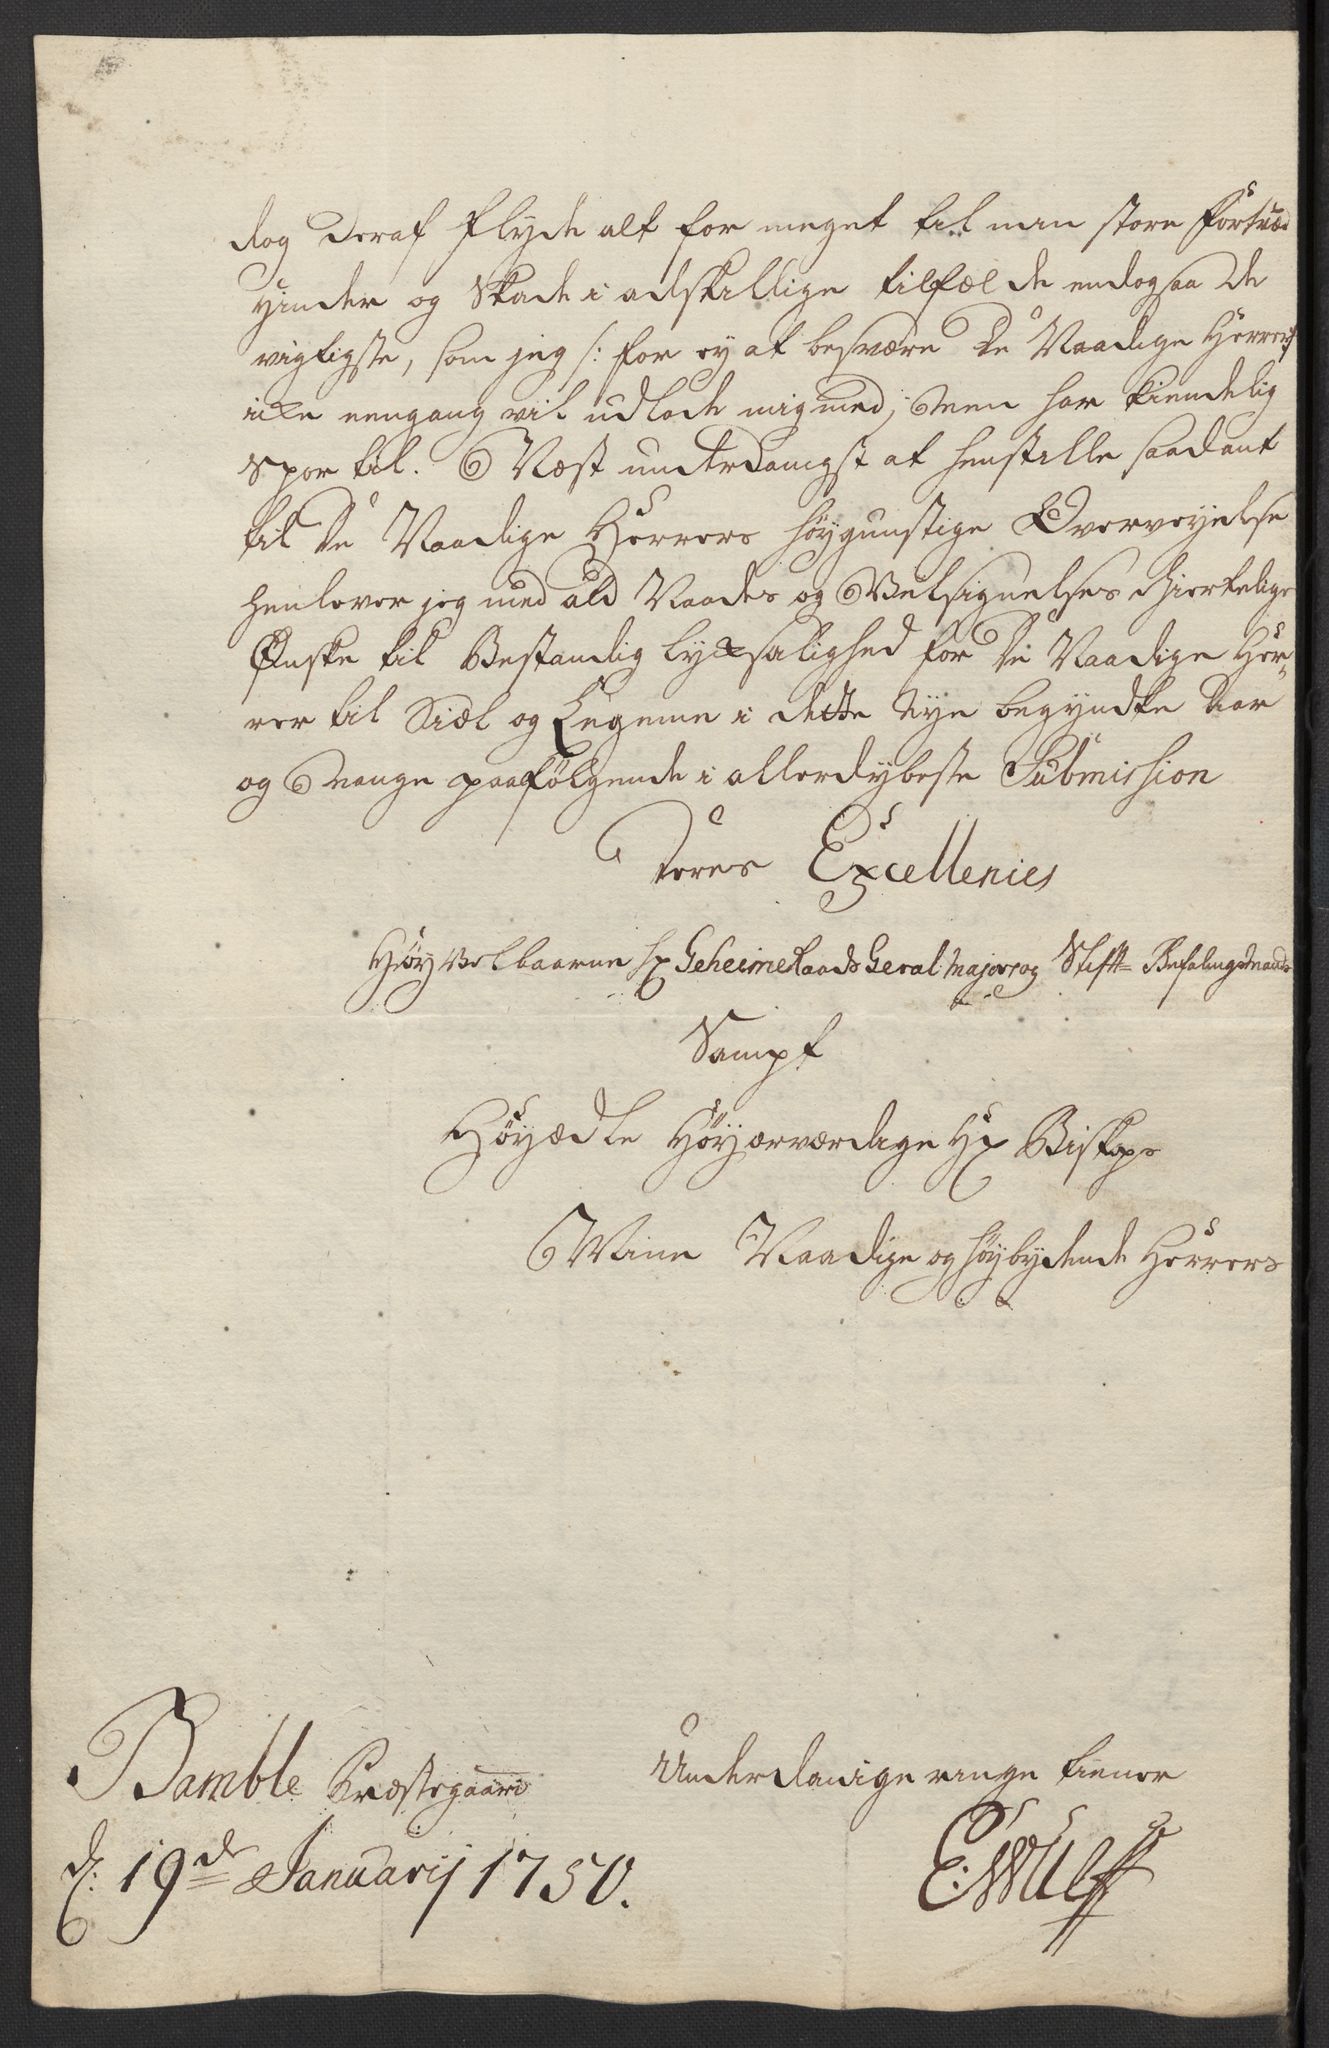 dog deraf flyde alt for meget til min store Fortræd
Hinder og Skade i adskillige tilfælde endogsaa de
vigtigste, som jeg /: for ey at besvære De Naadige Herrer :/
icke eengang vil udlade mig med, Men har kiendelig
Spor til. Næst underdanigst at henstille saadant
til De Naadige Herrers höygunstige Overveyelse
henlever jeg med ald Naades og Velsignelses hiertelige
Ønske til Bestandig lycksalighed for De Naadige Her-
rer til Siæl og Legeme i dette Nye begyndte Aar
og Mange paafølgende i allerdybeste Submission
Deres Excellences
Høy Velbaarne Hr Geheime Raads Geral Major og Stift- Befalingsmands
Sampt
Höyædle Höyærværdige Hr Biskops
Mine Naadige og höybydende Herrers
Bamble Præstegaard
d: 19de Januarij 1750.
Underdanige ringe tiener
E: Wulff